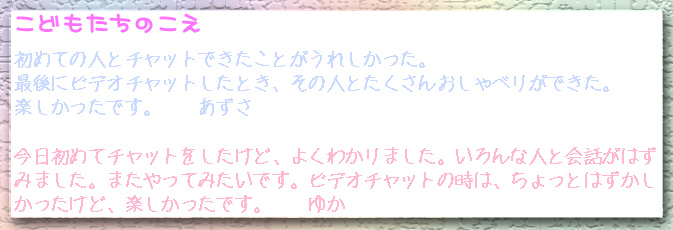 こどもたちのこえ
初めての人とチャットできたことがうれしかった。
最後にビデオチャットしたとき、その人とたくさんおしゃべりができた。
楽しかったです。　　あずさ
今日初めてチャットをしたけど、よくわかりました。いろんな人と会話がはず
みました。またやってみたいです。ビデオチャットの時は、ちょっとはずかし
かったけど、楽しかったです。　　ゆか